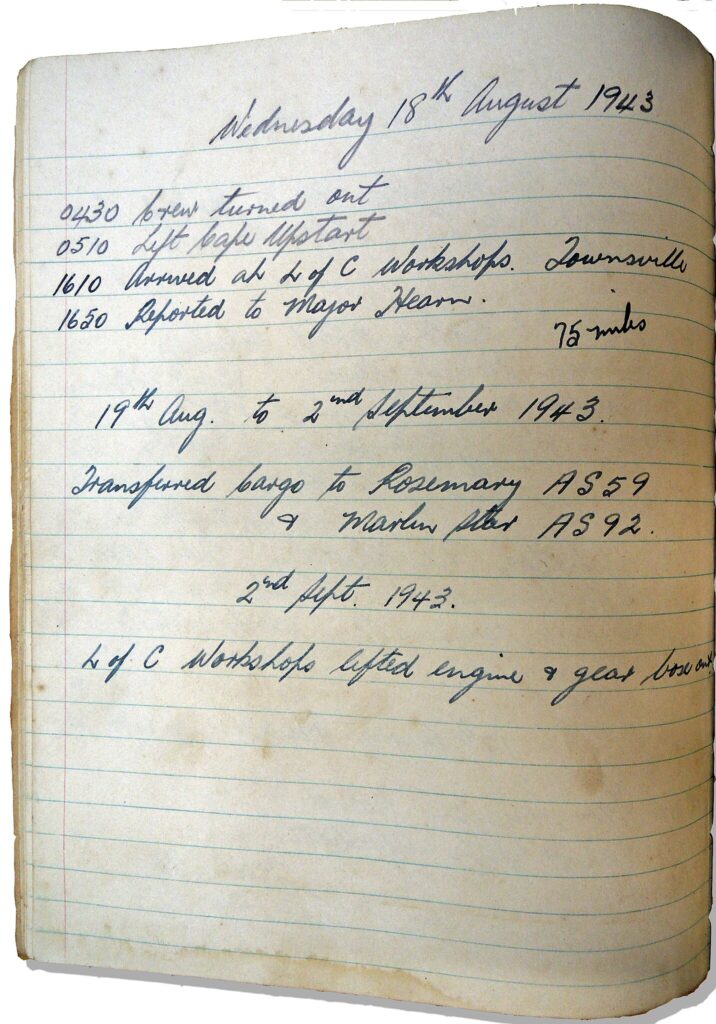 Wednesday 18th August 1943
0430 Crew turned out
0510 Left Cape Upstart
1610 Arrived at L of C Workshops. Townsville
1650 Reported to Major Hearn.
75 miles
19th Aug. to 2nd September 1943.
Transferred Cargo to Rosemary AS59
& Marlin Star AS92.
2nd Sept. 1943.
L of C Workshops lifted engine & gear box out